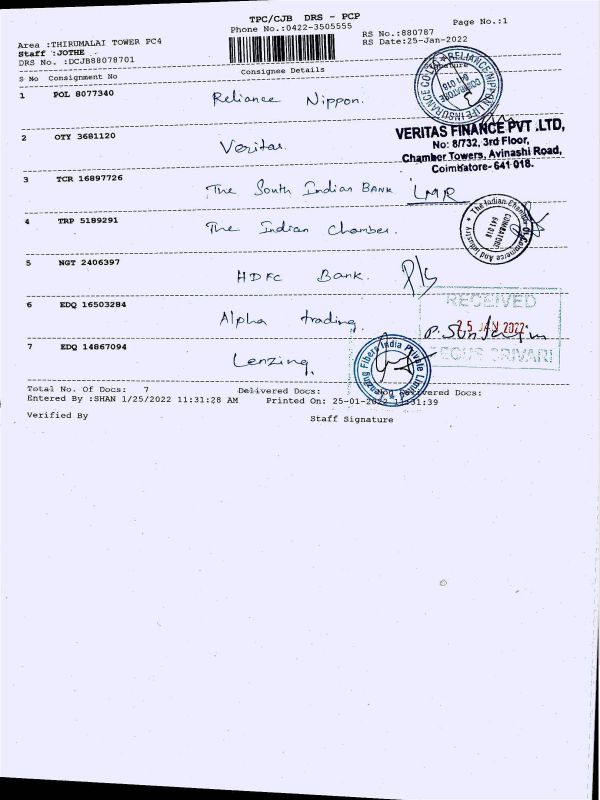 TPC/CJB DRS - PCP
Page No.:1
Phone No.:0422-3505555
RS No.:880787
Area :THIRUMALAI TOWER PC4
RS Date:25-Jan-2022
Staff :JOTHE
DRS No. :DCJB88078701
S No Consignment No Consignee Details
1 POL 8077340 Reliance Nippon.
RELIANCE NIPPON LIFE INSURANCE CO LTD
COIMBATORE
641 018
2 OTY 3681120 Veritas.
VERITAS FINANCE PVT .LTD,
No: 8/732, 3rd Floor,
Chamber Towers, Avinashi Road,
Coimbatore- 641 018.
3 TCR 16897726 The South Indian BANK LMR
4 TRP 5189291 The Indian Chamber.
The Indian Chamber Of Commerce And Industry
COIMBATORE
641 018
5 NGT 2406397 HDFC Bank.
6 EDQ 16503284 Alpha trading.
RECEIVED
25 JAN 2022
7 EDQ 14867094 Lenzing.
Fibers India Private Limited
Total No. Of Docs: 7 Delivered Docs: Non Delivered Docs:
Entered By :SHAN 1/25/2022 11:31:28 AM Printed On: 25-01-2022 11:31:39
Verified By Staff Signature